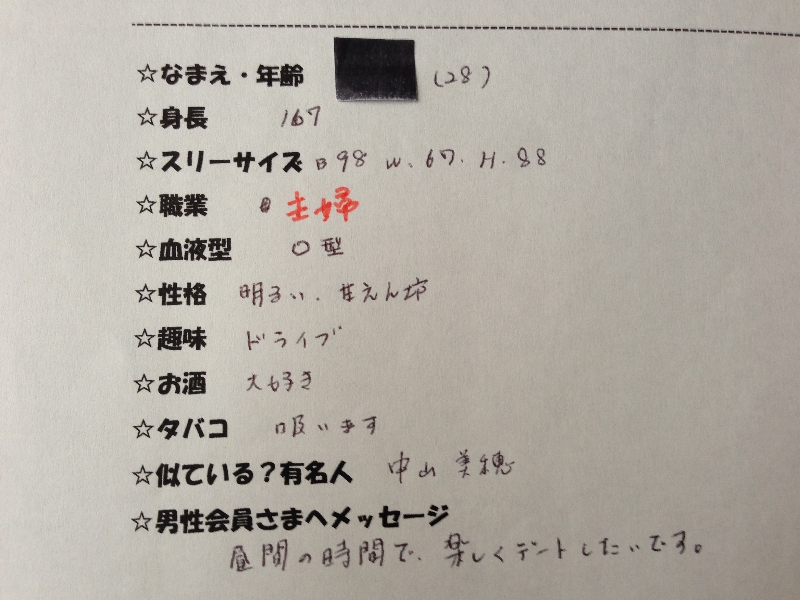 ☆なまえ・年齢 (28)
☆身長 167
☆スリーサイズ B 98 W. 67. H. 88
☆職業 主婦
☆血液型 O型
☆性格 明るい、甘えん坊
☆趣味 ドライブ
☆お酒 大好き
☆タバコ 吸います
☆似ている？有名人 中山美穂
☆男性会員さまへメッセージ
昼間の時間で、楽しくデートしたいです。